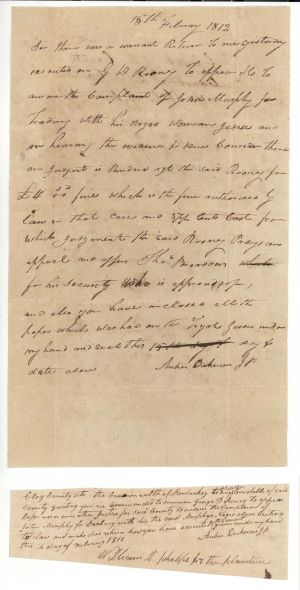 15th Februay 1812
Sir there was a warrant Return to me yesterday
executed on G D Rooney to appear &c To
answer the Complaint of John Murphy for
Trading with his Negro Woman and
on hearing the evidence &
an Judgment is Rendard agt the said Rooney for
£4 fines which is the fine authorised by
law in that case and 37½ Cents Cost from
which Judgment the said Rooney Prays an
appeal and offers Thos Broaddus
for his security who is approved of,
and also you have inclosed all the
papers which was had on the Tryal Given under
my hand and seal this 15th day of day &
date above
Archer Dickerson JP
Clay County sto the Commonwealth of Kentucky to any Constable of said
County Greeting you are Commanded to summon George D Rooney to appear
before me or some other Justice for said County to answer the Complaint of
John Murphy for Dealing with his the said Murphys Negro Contrary
to law and make due return how you have executed Given under my hand
this 14 day of February 1812
Archer Dickerson JP
William for the plaintive